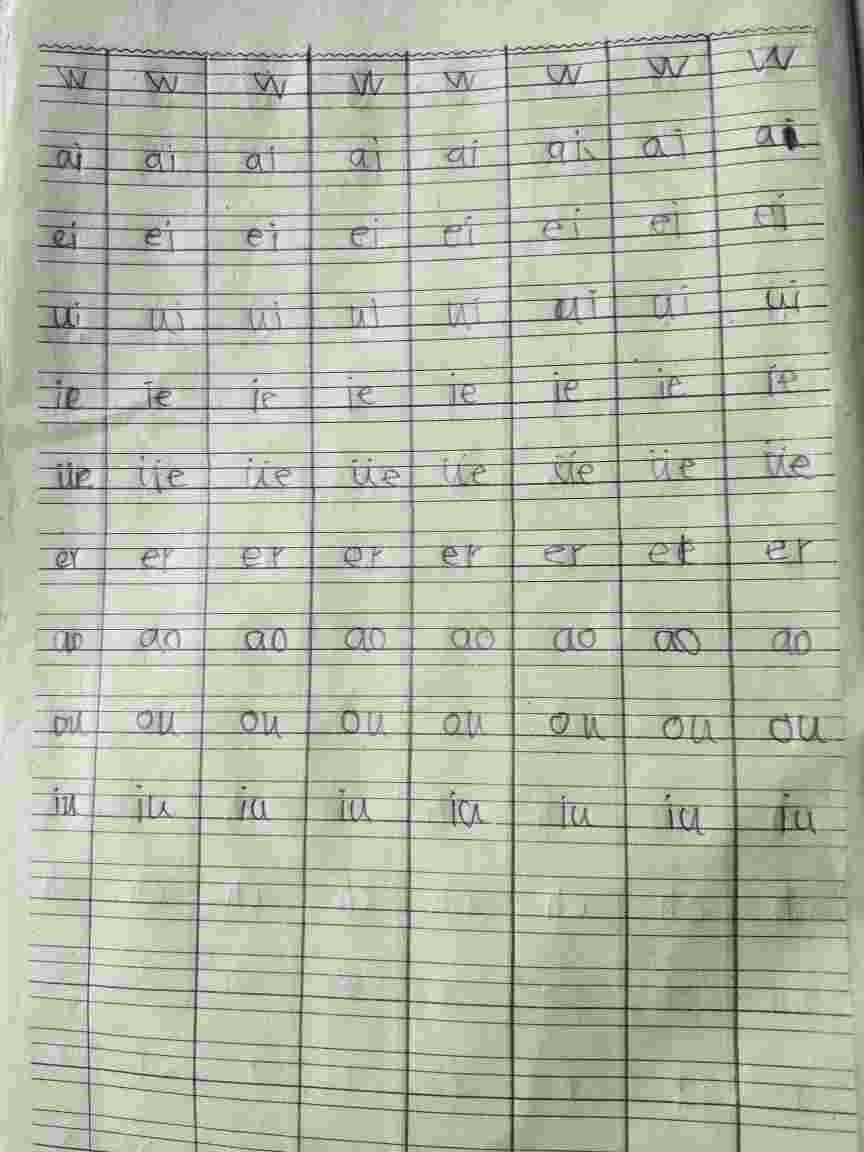 w w w w w w w w
ai ai ai ai ai ai ai ai
ei ei ei ei ei ei ei ei
ui ui ui ui ui ui ui ui
ie ie ie ie ie ie ie ie
üe üe üe üe üe üe üe üe
er er er er er er er er
ao ao ao ao ao ao ao ao
ou ou ou ou ou ou ou ou
iu iu iu iu iu iu iu iu